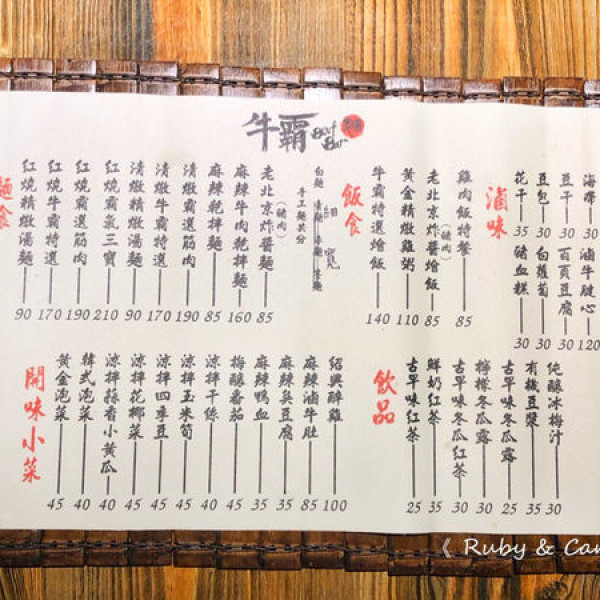 牛霸 Beef Bar
麵食
紅燒精燉湯麵 90
紅燒牛霸特選 170
紅燒霸選筋肉 190
紅燒霸氣三寶 210
清燉精燉湯麵 90
清燉牛霸特選 170
清燉霸選筋肉 190
麻辣乾拌麵 85
麻辣牛肉乾拌麵 160
老北京炸醬麵(豬肉) 85
手工麵共分
白麵
細
寬
飯食
牛霸特選燴飯 140
黃金精燉雞粥 110
老北京炸醬燴飯(豬肉) 85
雞肉飯特餐 85
滷味
花干 35
豆包 30
豆干 30
海帶 30
豬血糕 30
白蘿蔔 30
百頁豆腐 30
滷牛腱心 120
開味小菜
黃金泡菜 45
韓式泡菜 40
涼拌蒜香小黃瓜 40
涼拌花椰菜 45
涼拌四季豆 45
涼拌玉米筍 45
涼拌干絲 40
梅釀番茄 45
麻辣鴨血 35
麻辣臭豆腐 35
麻辣滷牛肚 85
紹興醉雞 100
飲品
古早味紅茶 25
鮮奶紅茶 35
古早味冬瓜紅茶 30
檸檬冬瓜露 30
古早味冬瓜露 25
有機豆漿 35
純釀冰梅汁 30
《 Ruby & Can